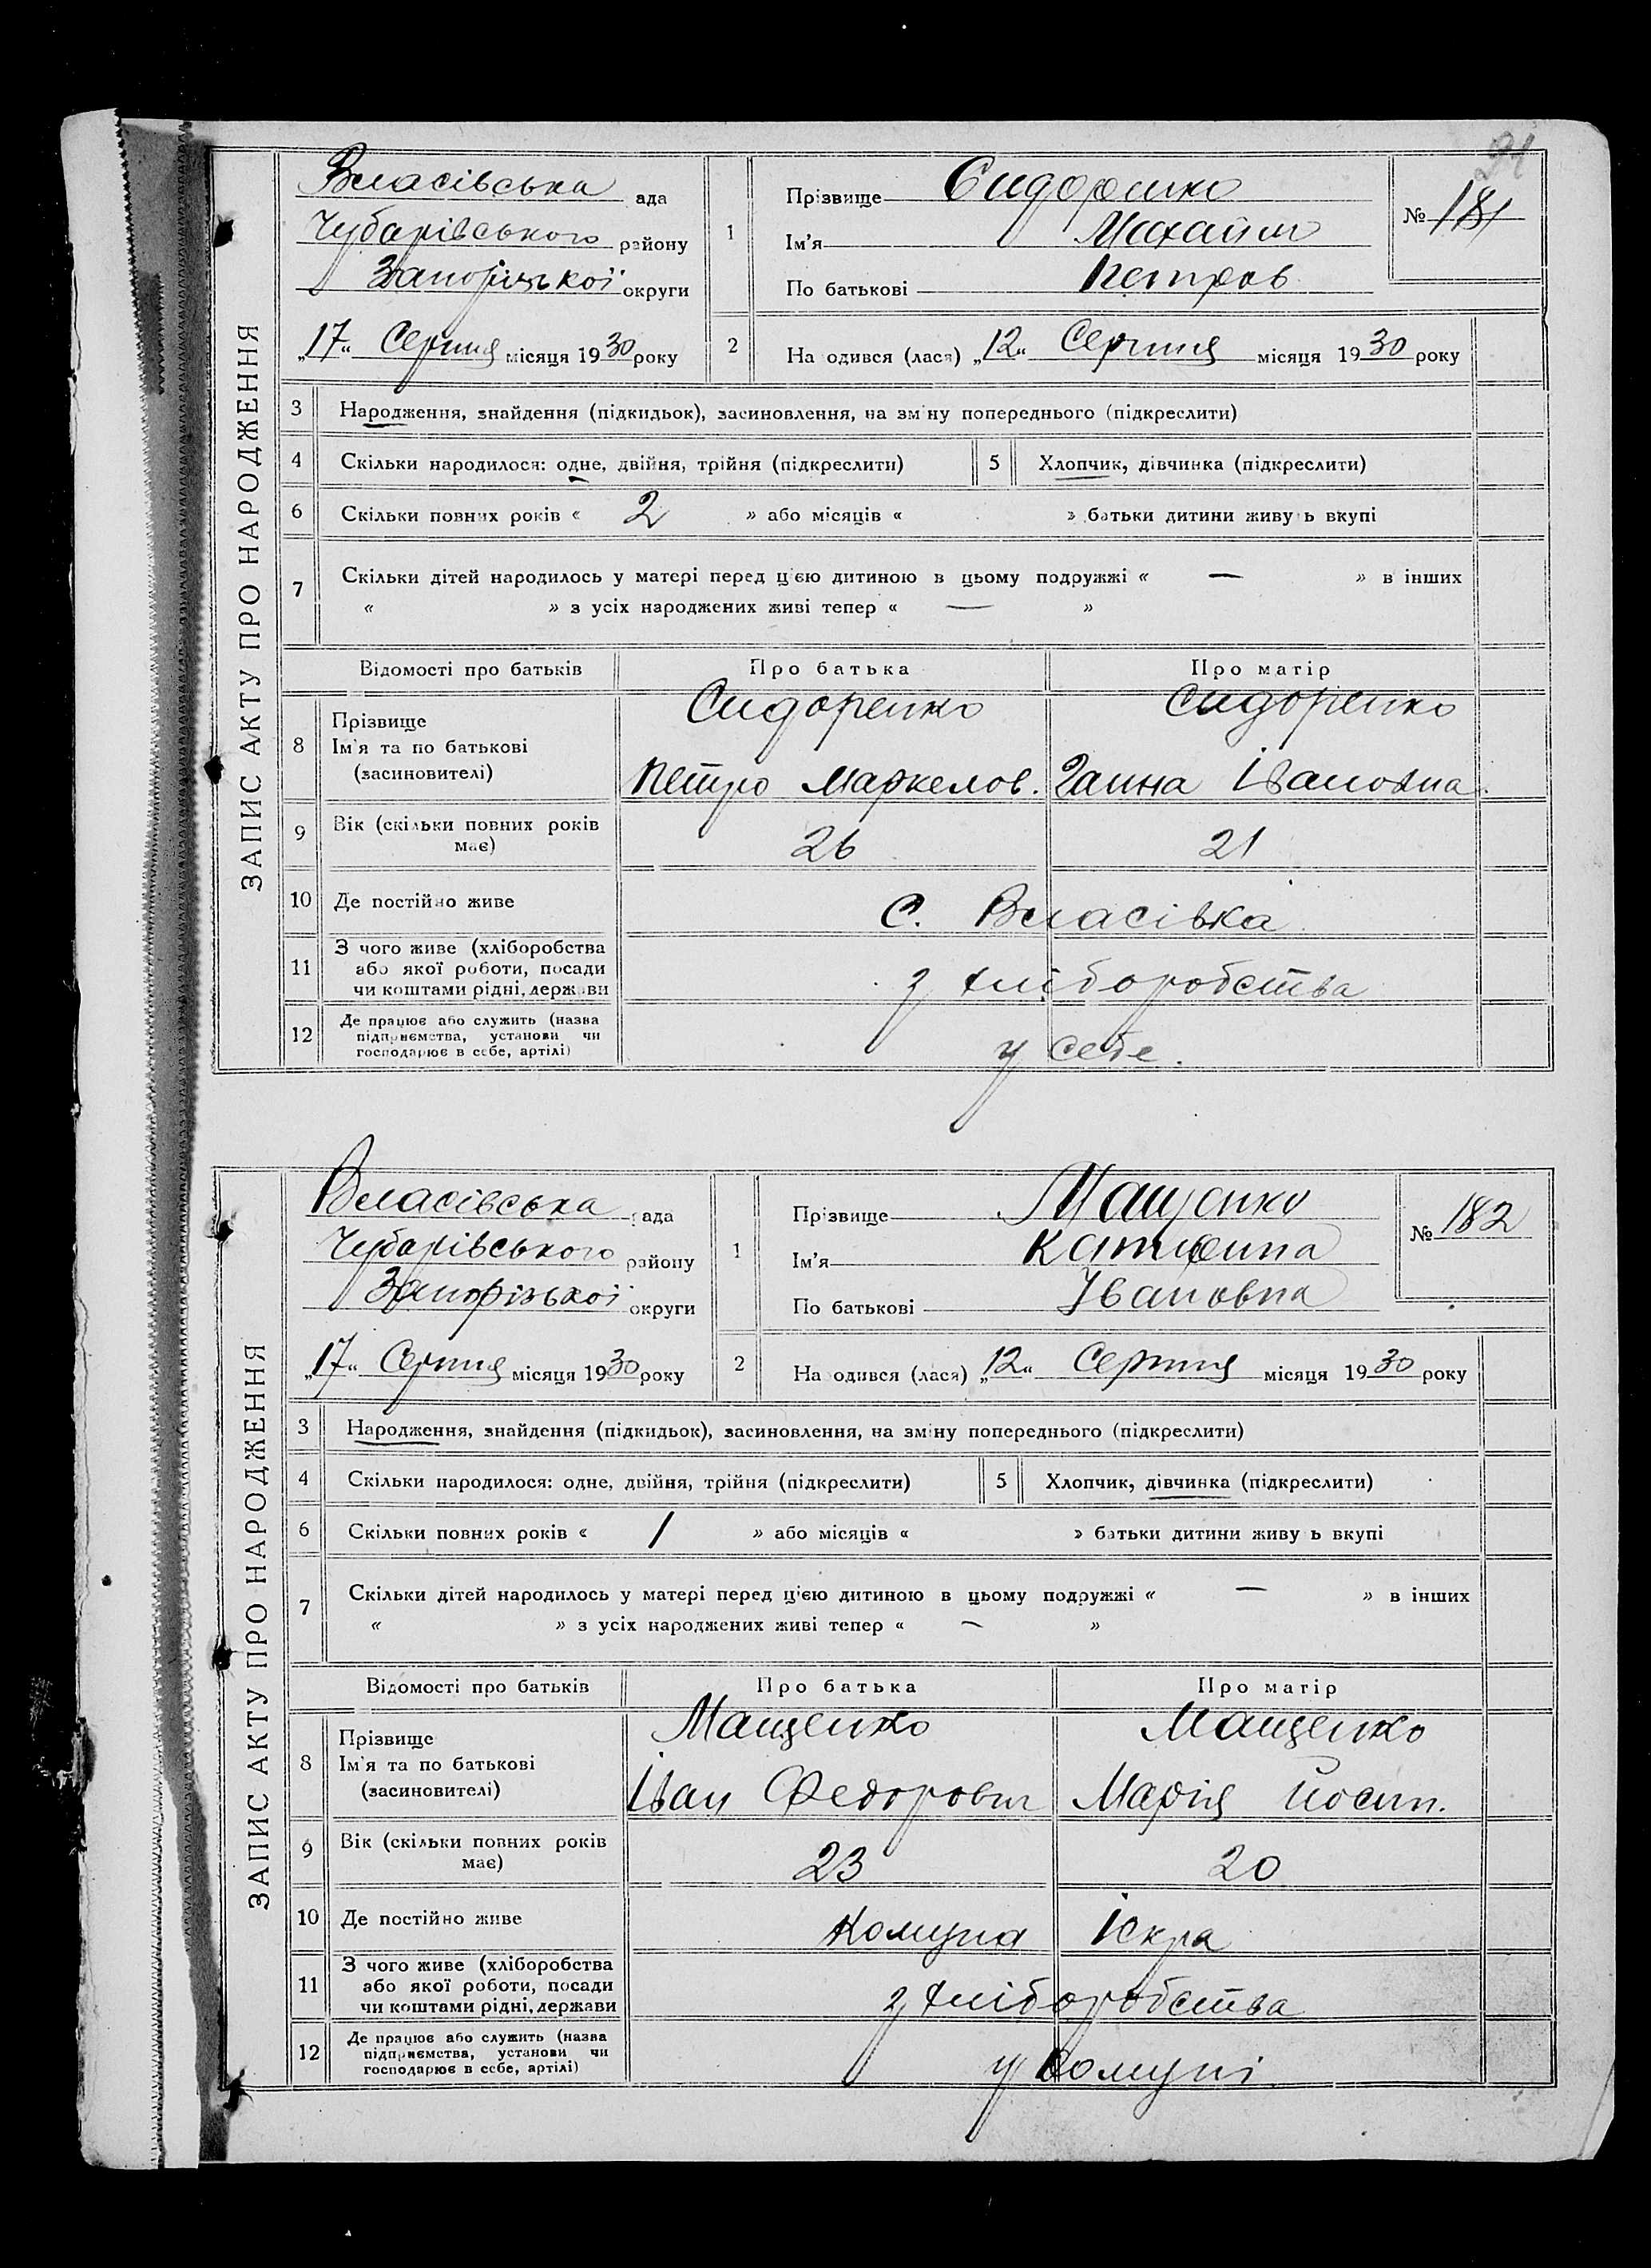 91
ЗАПИС АКТУ ПРО НАРОДЖЕННЯ
Власівська ада
Чубарівського району
Запорізької округи
„17“ Серпня місяця 1930 року
1
Прізвище Сидоренко
Ім’я Михайло
По батькові Петров
№ 181
2
На одився (лася) „12“ Серпня місяця 1930 року
3 Народження, знайдення (підкидьок), засиновлення, на зміну попереднього (підкреслити)
4 Скільки народилося: одне, двійня, трійня (підкреслити) 5 Хлопчик, дівчинка (підкреслити)
6 Скільки повних років « 2 » або місяців « » батьки дитини живу ь вкупі
7 Скільки дітей народилось у матері перед цією дитиною в цьому подружжі « — » в інших
« » з усіх народжених живі тепер « — »
Відомості про батьків Про батька Про матір
8 Прізвище Сидоренко Сидоренко
Ім’я та по батькові
(засиновителі) Петро Маркелов. Ганна Івановна.
9 Вік (скільки повних років
має) 26 21
10 Де постійно живе С. Власівка
11 З чого живе (хліборобства
або якої роботи, посади
чи коштами рідні, держави з хліборобства
12 Де працює або служить (назва
підприємства, установи чи
господарює в себе, артілі) у себе.
ЗАПИС АКТУ ПРО НАРОДЖЕННЯ
Власівська рада
Чубарівського району
Запорізької округи
„17“ Серпня місяця 1930 року
1
Прізвище Мащенко
Ім’я Катерина
По батькові Івановна
№ 182
2
На одився (лася) „12“ Серпня місяця 1930 року
3 Народження, знайдення (підкидьок), засиновлення, на зміну попереднього (підкреслити)
4 Скільки народилося: одне, двійня, трійня (підкреслити) 5 Хлопчик, дівчинка (підкреслити)
6 Скільки повних років « 1 » або місяців « » батьки дитини живу ь вкупі
7 Скільки дітей народилось у матері перед цією дитиною в цьому подружжі « — » в інших
« » з усіх народжених живі тепер « — »
Відомості про батьків Про батька Про матір
8 Прізвище Мащенко Мащенко
Ім’я та по батькові
(засиновителі) Іван Федорович Марія Йосип.
9 Вік (скільки повних років
має) 23 20
10 Де постійно живе Комуна Іскра
11 З чого живе (хліборобства
або якої роботи, посади
чи коштами рідні, держави з хліборобства
12 Де працює або служить (назва
підприємства, установи чи
господарює в себе, артілі) у комуні